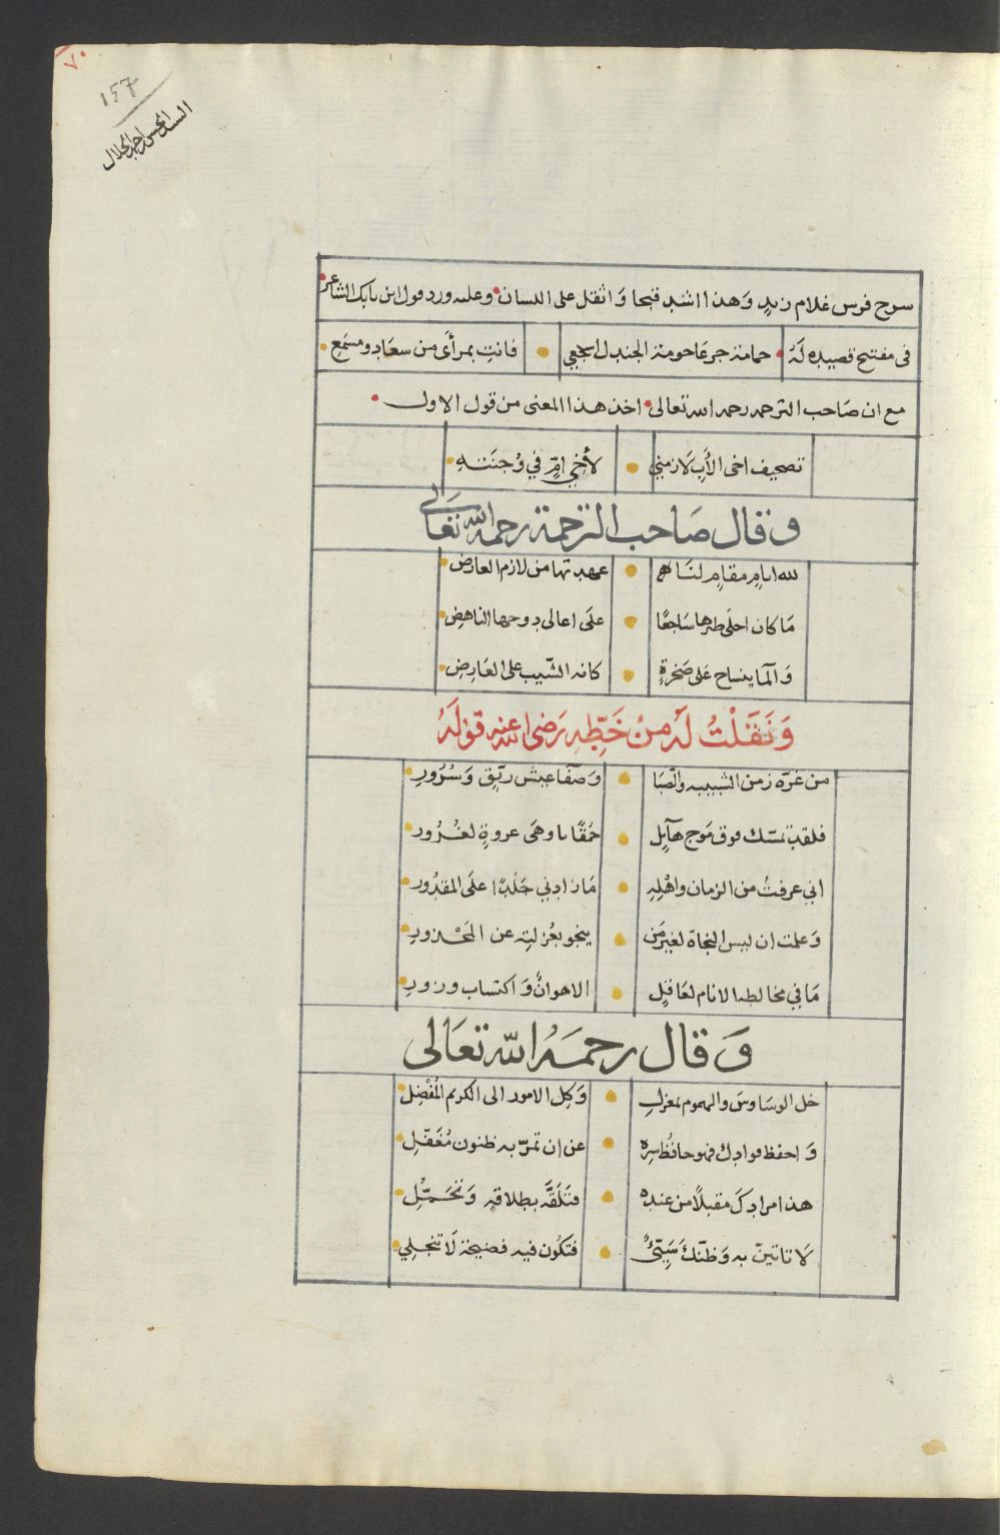 ٧٠
157
السيد الحسن احمد الجلال
سرج فرس غلام زيدٍ وَهذا اشد قبحا وَاثقل على اللسان وعليه ورد قول ابن بابك الشاعر
فى مفتتح قصيده لَهُ حمامة جرعَا حومة الجندل اسجعي فانتِ بمرأى من سعَاد ومسمَع
مع ان صَاحب الترجمه رحمه الله تعالى اخذ هذا المعنى من قول الاول
تصحيف اخى الأبِ لَازمني لأخي امٍّ في وُجنَتهِ
وقال صَاحب الترجمة رحمه الله تعَالى
لله ايام مقامٍ لنا عهدتها من لازم العارض
مَا كان احلَى طيرها سَاجعًا علَى اعالى دوحها الناهِض
وَالمَا ينساح عَلى صَخرةٍ كانه الشّيب على العَارِض
وَنَقَلْتُ لَه مِنْ خَطِّهِ رَضى الله عنه قولَهُ
من غرّه زمن الشبيبه والصّبَا وَصفا عيش ريّقٍ وَسُرورِ
فلقد تمسّك فوق مَوج هآيلٍ حُمقًا باوهَى عروةٍ لغُرُور
انى عرفتُ من الزمان واهْلِهِ مَا زادنى جَلَدًا علَى المقدُور
وَعلمت ان ليس النجاة لغير مَن ينجو بعُزلتِه عن المَحْذورِ
مَا في مخالطه الانام لعَاقلٍ الا هوانٌ وَاكتساب وزورِ
وَقال رحمَهُ الله تعَالى
خل الوسَاوسَ والهموم بمعزلِ وَكِل الامور الى الكريم المُفْضِل
وَاحفظ فوادك فهو حافظُ سِرِه عن ان تمرّ به ظنون مُغَفّلِ
هذا مرادكَ مقبلًا من عنده فتَلَقَّه بطلاقةٍ وَتحَمّلِ
لَا تاتينّ به وَظنّكَ سَيّئٌ فتكُون فيه فضيحة لَا تنجلِي